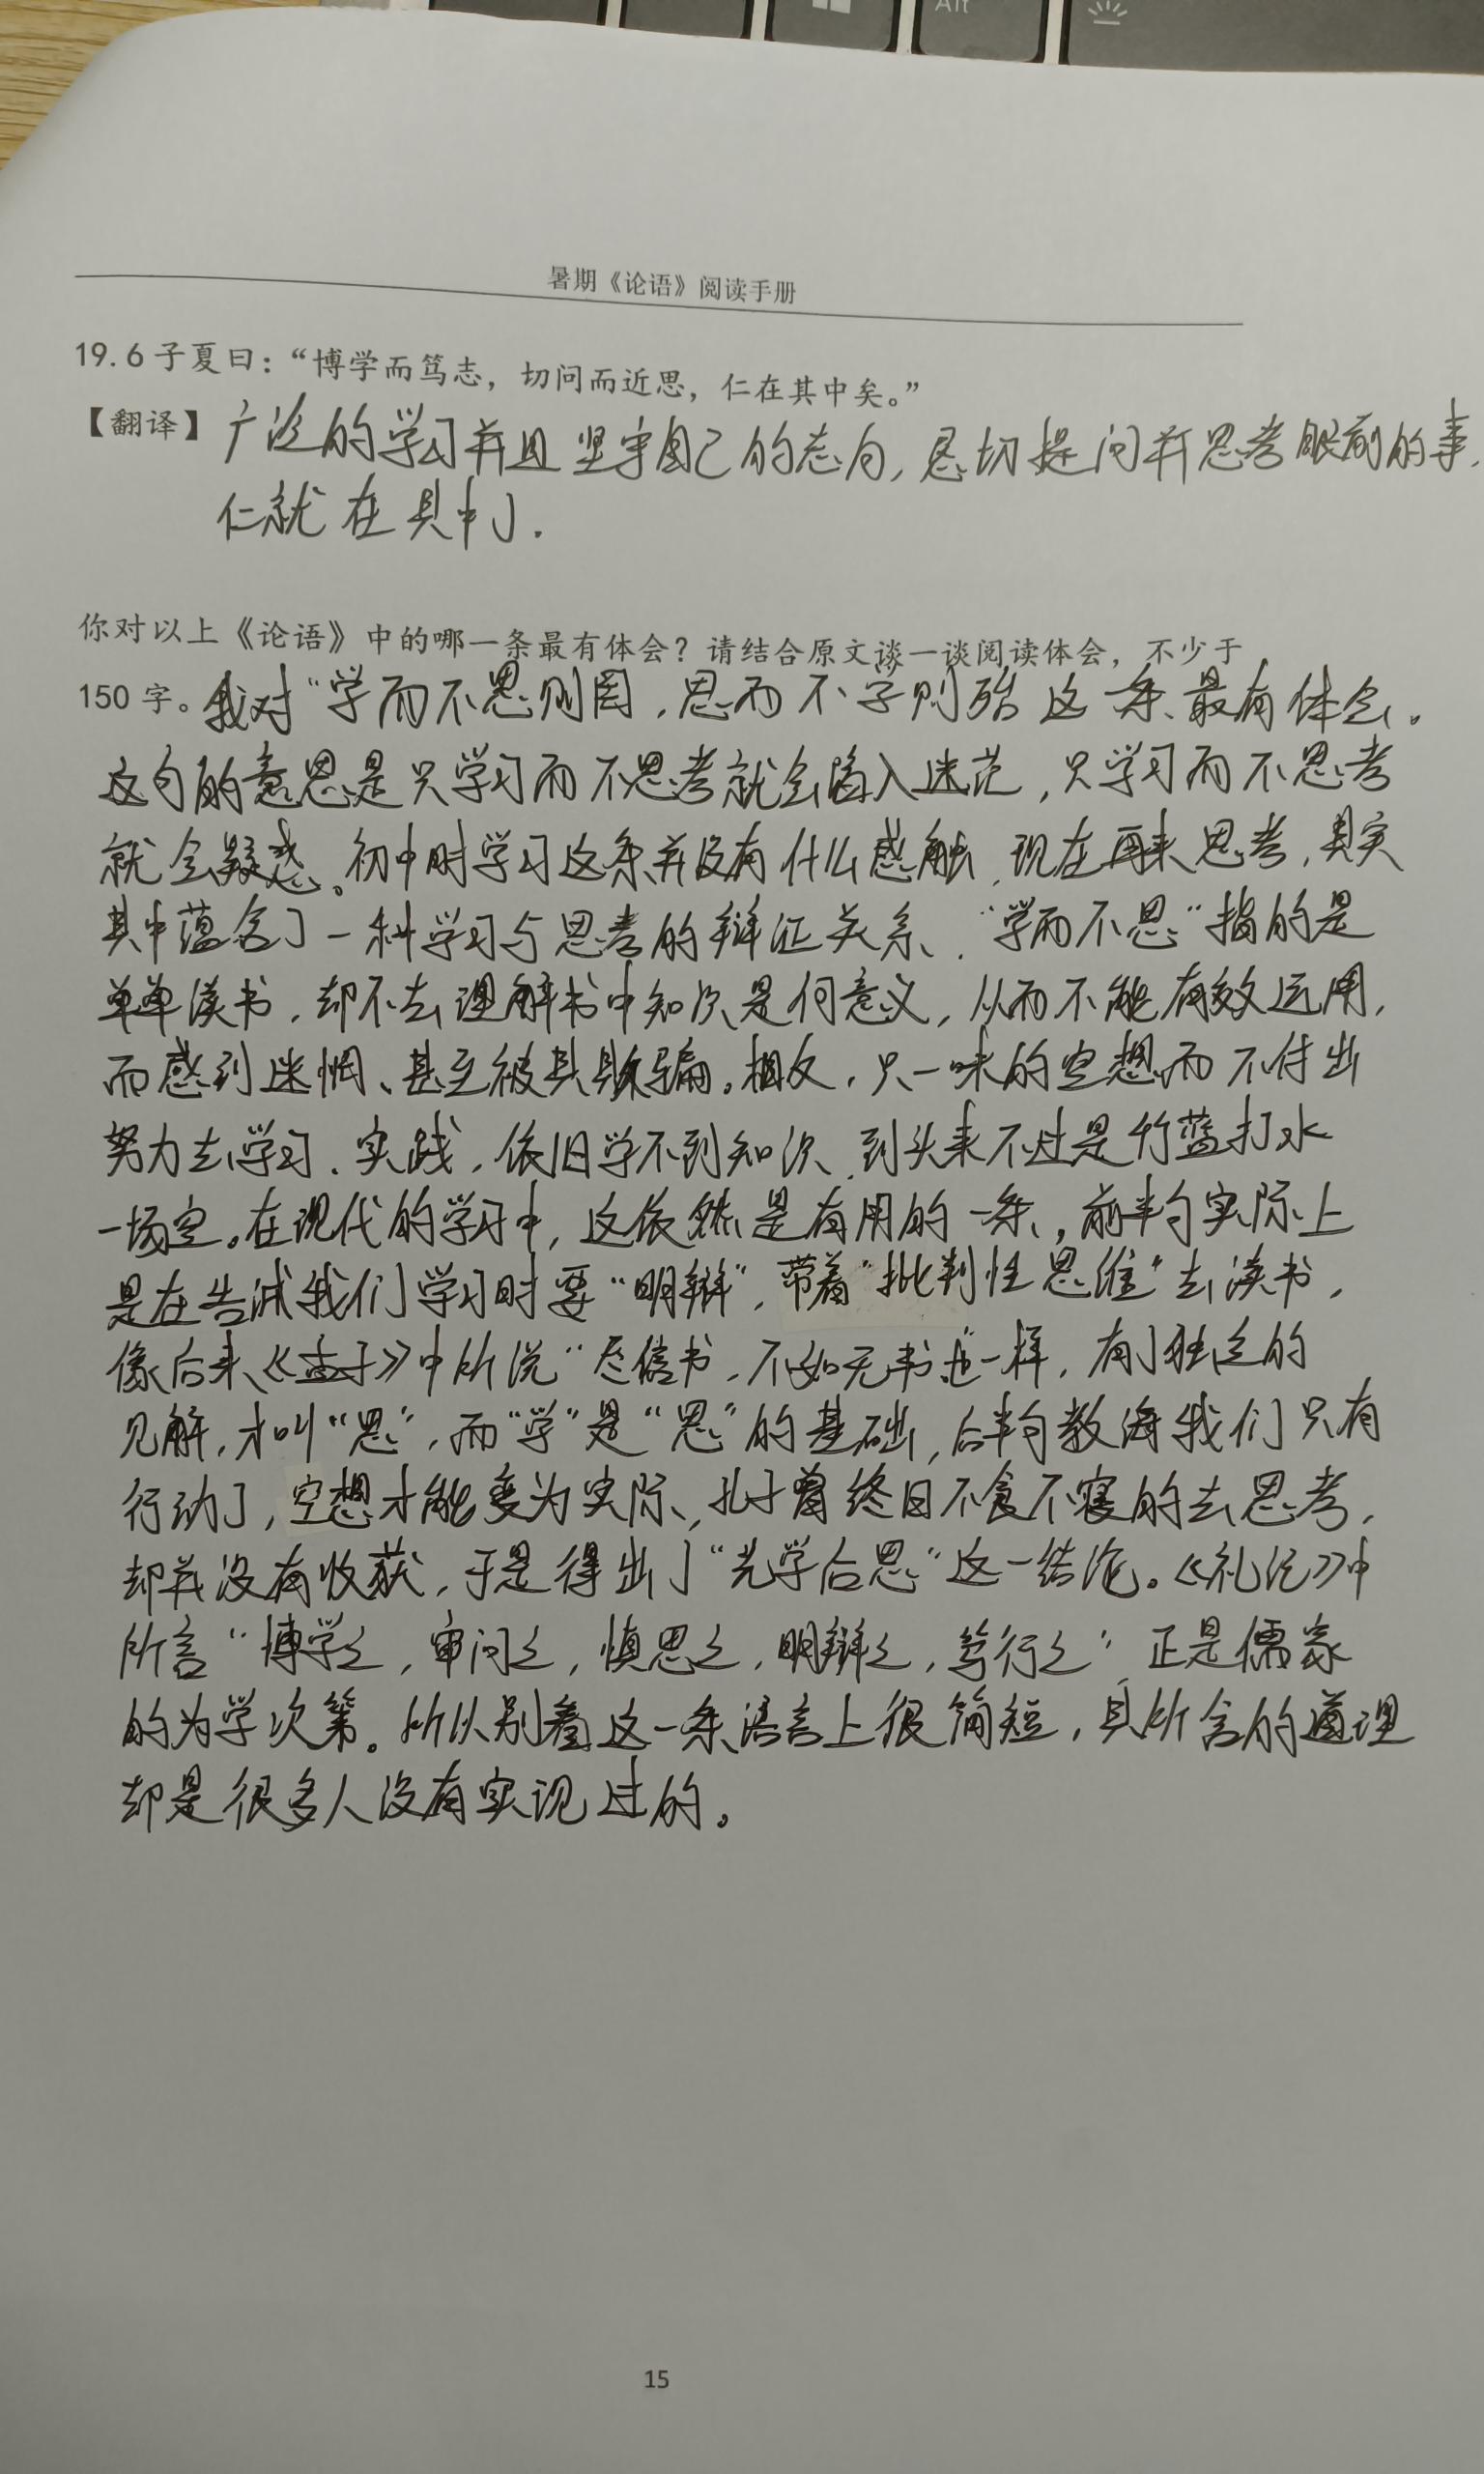 Alt
暑期《论语》阅读手册
19.6 子夏曰：“博学而笃志，切问而近思，仁在其中矣。”
【翻译】广泛的学习并且坚守自己的志向，恳切提问并思考眼前的事，
仁就在其中了.
你对以上《论语》中的哪一条最有体会？请结合原文谈一谈阅读体会，不少于
150 字。我对“学而不思则罔，思而不学则殆 这一条最有体会。
这句的意思是只学习而不思考就会陷入迷茫，只学习而不思考
就会疑惑。初中时学习这条并没有什么感触，现在再来思考，其实
其中蕴含了一种学习与思考的辩证关系，“学而不思”指的是
单单读书，却不去理解书中知识是何意义，从而不能有效运用，
而感到迷惘、甚至被其欺骗。相反，只一味的空想而不付出
努力去学习、实践，依旧学不到知识，到头来不过是竹蓝打水
一场空。在现代的学习中，这依然是有用的一条，前半句实际上
是在告诫我们学习时要“明辩”，带着“批判性思维”去读书，
像后来《孟子》中所说“尽信书，不如无书”一样，有了独立的
见解，才叫“思”，而“学”是“思”的基础，后半句教诲我们只有
行动了，空想才能变为实际，孔子曾终日不食不寝的去思考，
却并没有收获，于是得出了“先学后思”这一结论。《礼记》中
所言“博学之，审问之，慎思之，明辩之，笃行之”，正是儒家
的为学次第。所以别看这一条语言上很简短，其所含的道理
却是很多人没有实现过的。
15